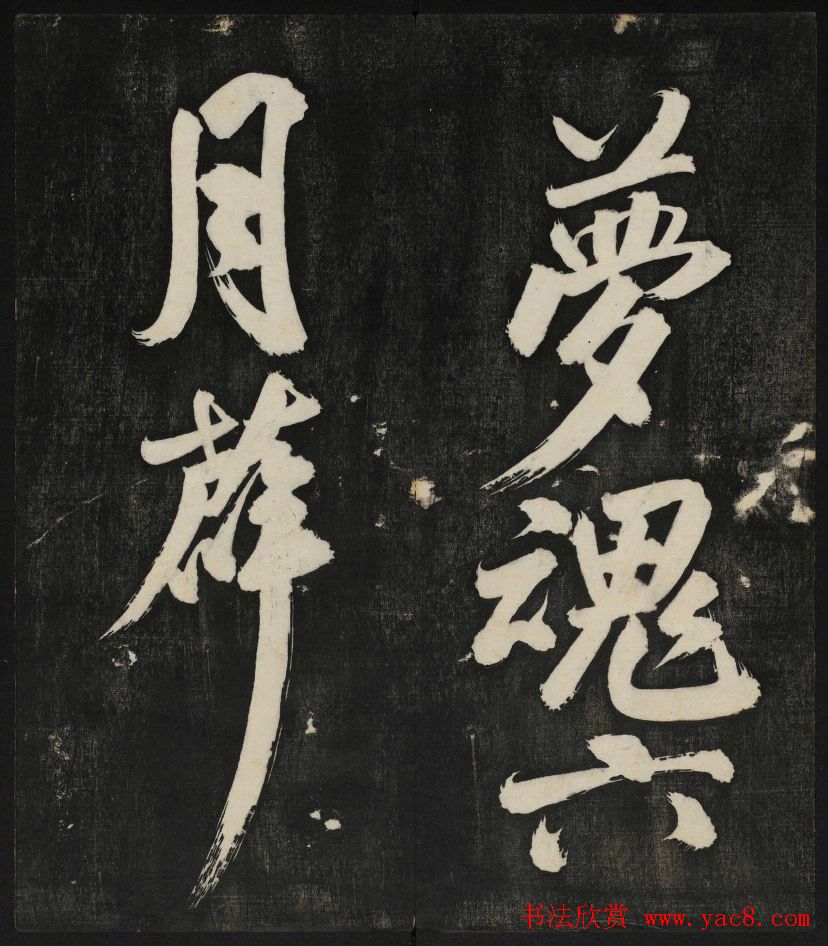 夢魂六
月薜
书法欣赏 www.yac8.com